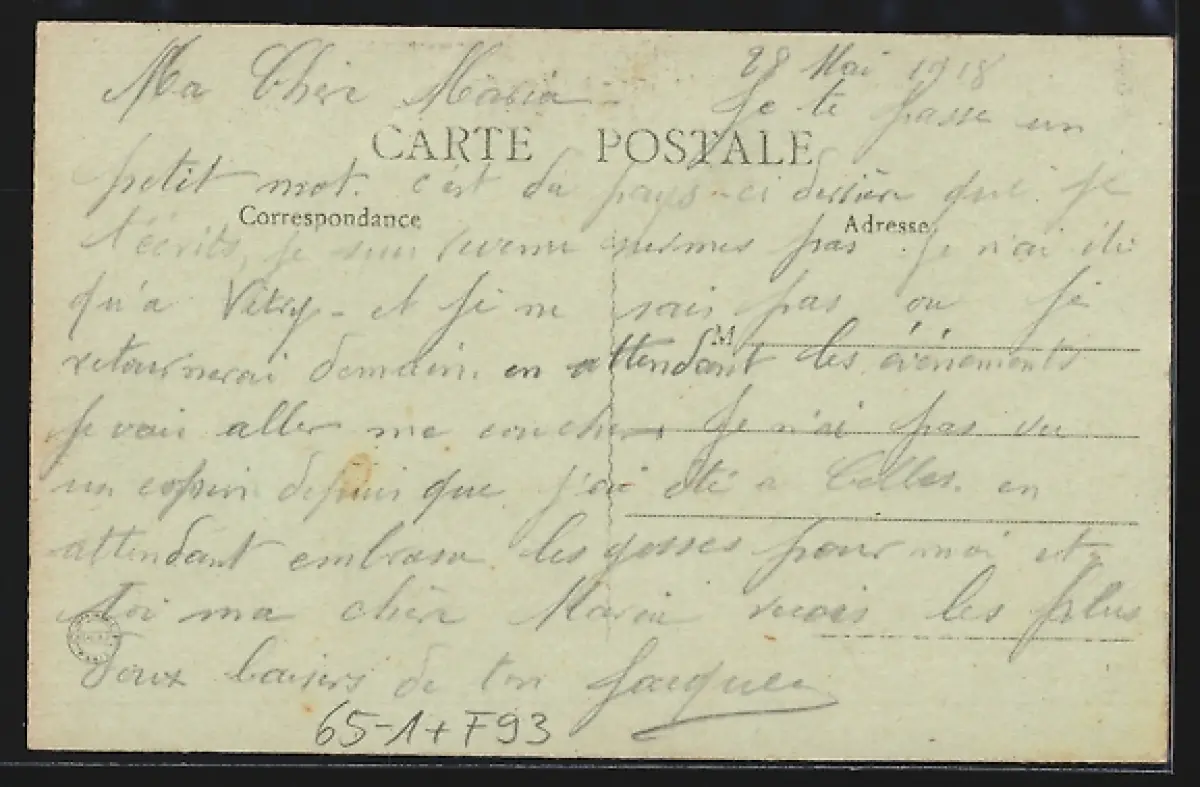 28 Mai 1918
Ma Chère Maria - Je te passe un
CARTE POSTALE
petit mot. c'est du pays-ci derrière que je
Correspondance
Adresse
t'écrits, je suis revenu mermes pas. Je n'ai été
qu'a Vitry - et je ne sais pas ou je
M
retournerai demain. en attendant les événements
je vais aller me coucher Je n'ai pas vu
un copain depuis que j'ai été a Celles. en
attendant embrasse les gosses pour moi et
toi ma chère Maria reçois les plus
doux baisers de ton Jacques
65-1+F93